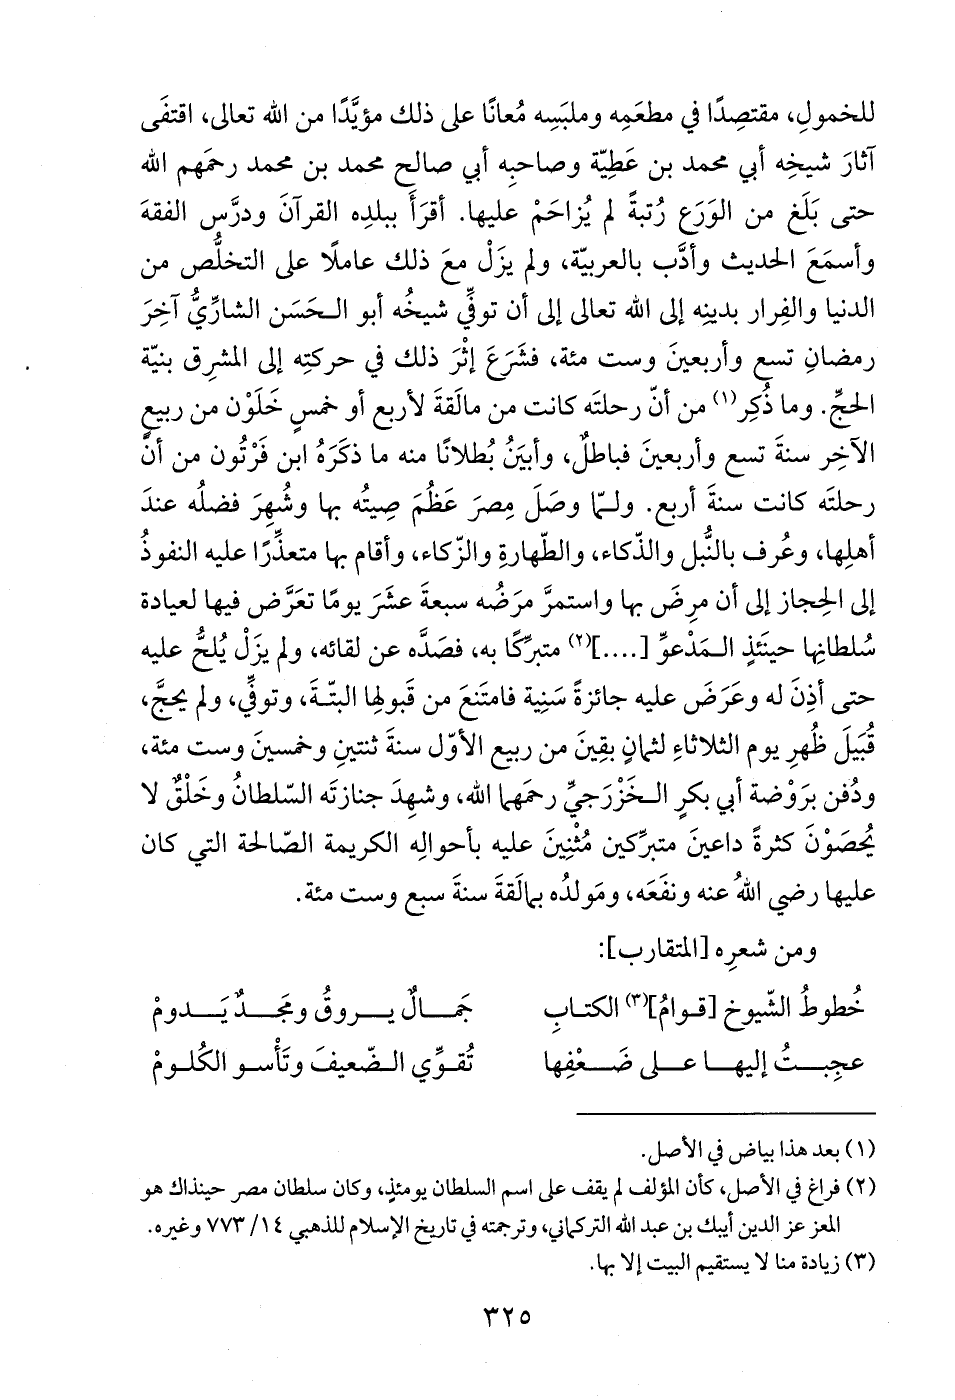 للخمولِ، مقتصِدًا في مطعَمِه وملبَسِه مُعانًا على ذلك مؤيَّدًا من الله تعالى، اقتفَى
آثارَ شيخِه أبي محمد بن عَطِيّة وصاحبِه أبي صالح محمد بن محمد رحمَهم الله
حتى بَلَغ من الوَرَع رُتبةً لم يُزاحَمْ عليها. أقرَأَ ببلدِه القرآنَ ودرَّس الفقهَ
وأسمَعَ الحديث وأدَّب بالعربيّة، ولم يزَلْ معَ ذلك عاملًا على التخلُّص من
الدنيا والفِرار بدينِه إلى الله تعالى إلى أن توفِّي شيخُه أبو الحَسَن الشارِّيُّ آخِرَ
رمضانِ تسع وأربعينَ وست مئة، فشَرَعَ إثْرَ ذلك في حركتِه إلى المشرِق بنيّة
الحجِّ. وما ذُكِر(١) من أنّ رحلتَه كانت من مالَقةَ لأربع أو خمسٍ خَلَوْن من ربيعٍ
الآخِر سنةَ تسع وأربعينَ فباطلٌ، وأبيَنُ بُطلانًا منه ما ذكَرَهُ ابن فَرْتُون من أنّ
رحلتَه كانت سنةَ أربع. ولـمّا وصَلَ مِصرَ عَظُمَ صِيتُه بها وشُهِرَ فضلُه عندَ
أهلِها، وعُرف بالنُّبل والذّكاء، والطّهارةِ والزّكاء، وأقام بها متعذِّرًا عليه النفوذُ
إلى الحِجاز إلى أن مرِضَ بها واستمرَّ مرَضُه سبعةَ عشَرَ يومًا تعَرَّض فيها لعيادة
سُلطانِها حينَئذٍ الـمَدْعوِّ [....](٢) متبرِّكًا به، فصَدَّه عن لقائه، ولم يزَلْ يُلحُّ عليه
حتى أذِنَ له وعَرَضَ عليه جائزةً سَنِية فامتَنعَ من قَبولِها البتّةَ، وتوفِّي، ولم يحجَّ،
قُبَيلَ ظُهرِ يوم الثلاثاءِ لثمانٍ بقِينَ من ربيع الأوّل سنةَ ثنتينِ وخمسينَ وست مئة،
ودُفن برَوْضة أبي بكرٍ الخَزْرجيِّ رحمَهما الله، وشهِدَ جنازتَه السّلطانُ وخَلْقٌ لا
يُحصَوْنَ كثرةً داعينَ متبرِّكين مُثْنِينَ عليه بأحوالِه الكريمة الصّالحة التي كان
عليها رضي اللهُ عنه ونفَعَه، ومَولدُه بمالَقةَ سنةَ سبع وست مئة.
ومن شعرِه [المتقارب]:
خُطوطُ الشّيوخِ [قوامُ](٣) الكتابِ    جَمالٌ يروقُ ومَجدٌ يَدومْ
عجِبتُ إليها على ضَعْفِها    تُقوِّي الضّعيفَ وتَأْسو الكُلومْ
(١) بعد هذا بياض في الأصل.
(٢) فراغ في الأصل، كأن المؤلف لم يقف على اسم السلطان يومئذٍ، وكان سلطان مصر حينذاك هو
المعز عز الدين أيبك بن عبد الله التركماني، وترجمته في تاريخ الإسلام للذهبي ١٤/ ٧٧٣ وغيره.
(٣) زيادة منا لا يستقيم البيت إلا بها.
٣٢٥